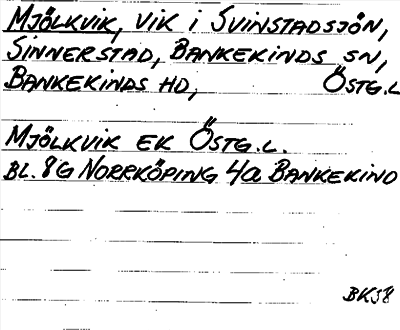 MJÖLKVIK, VIK I SVINSTADSJÖN,
SINNERSTAD, BANKEKINDS SN,
BANKEKINDS HD, ÖSTG.L
MJÖLKVIK EK ÖSTG.L.
BL. 8G NORRKÖPING 4a BANKEKIND
BKJ8